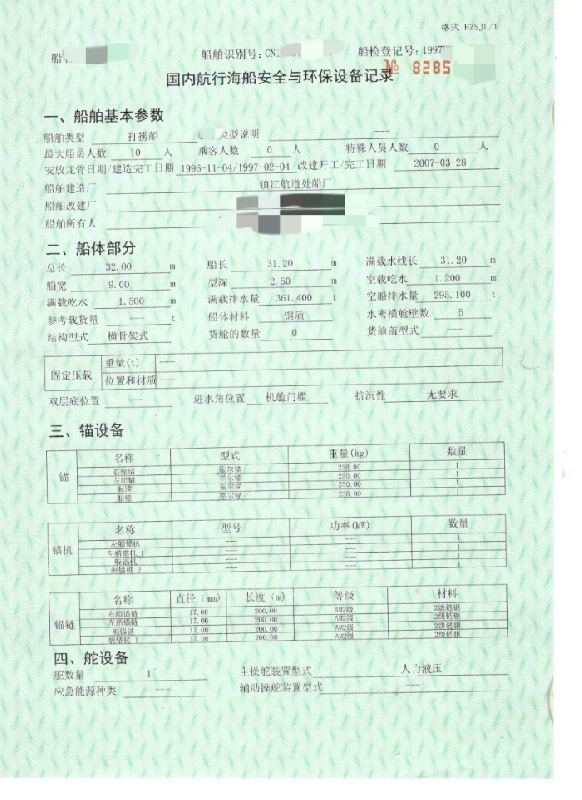 格式
船舶识别号：CN 船检登记号：1997
№ 8285
国内航行海船安全与环保设备记录
一、船舶基本参数
船舶类型 打捞船 类型说明 ---
最大船员人数 10 人 乘客人数 0 人 特殊人员人数 0 人
安放龙骨日期/建造完工日期 1995-11-04/1997-02-04 改建开工/完工日期 2007-03-28
船舶建造厂 镇江航道处船厂
船舶改建厂
船舶所有人
二、船体部分
总长 32.00 m 船长 31.20 m 满载水线长 31.20 m
船宽 9.00 m 型深 2.50 m 空载吃水 1.200 m
满载吃水 1.500 m 满载排水量 361.400 t 空船排水量 295.100 t
参考载货量 --- t 船体材料 钢质 水密横舱壁数 5
结构型式 横骨架式 货舱的数量 0 货舱盖型式 ---
固定压载 重量(t) ---
位置和材质 ---
双层底位置 --- 进水角位置 机舱门槛 抗沉性 无要求
三、锚设备
锚 名称 型式 重量(kg) 数量
右艏锚 霍尔锚 250.00 1
左艏锚 霍尔锚 250.00 1
霍尔锚 250.00 1
霍尔锚 250.00
锚机 名称 型号 功率(kW) 数量
左艏锚机 --- --- 1
--- --- 1
--- --- 1
--- --- 1
锚链 名称 直径(mm) 长度(m) 等级 材料
右艏锚链 17.00 200.00 AM2级 2级链钢
左艏锚链 17.00 200.00 AM2级 2级链钢
17.00 200.00 AM2级 2级链钢
17.00 200.00 AM2级 2级链钢
四、舵设备
舵数量 1 主操舵装置型式 人力液压
应急能源种类 --- 辅助操舵装置型式 ---